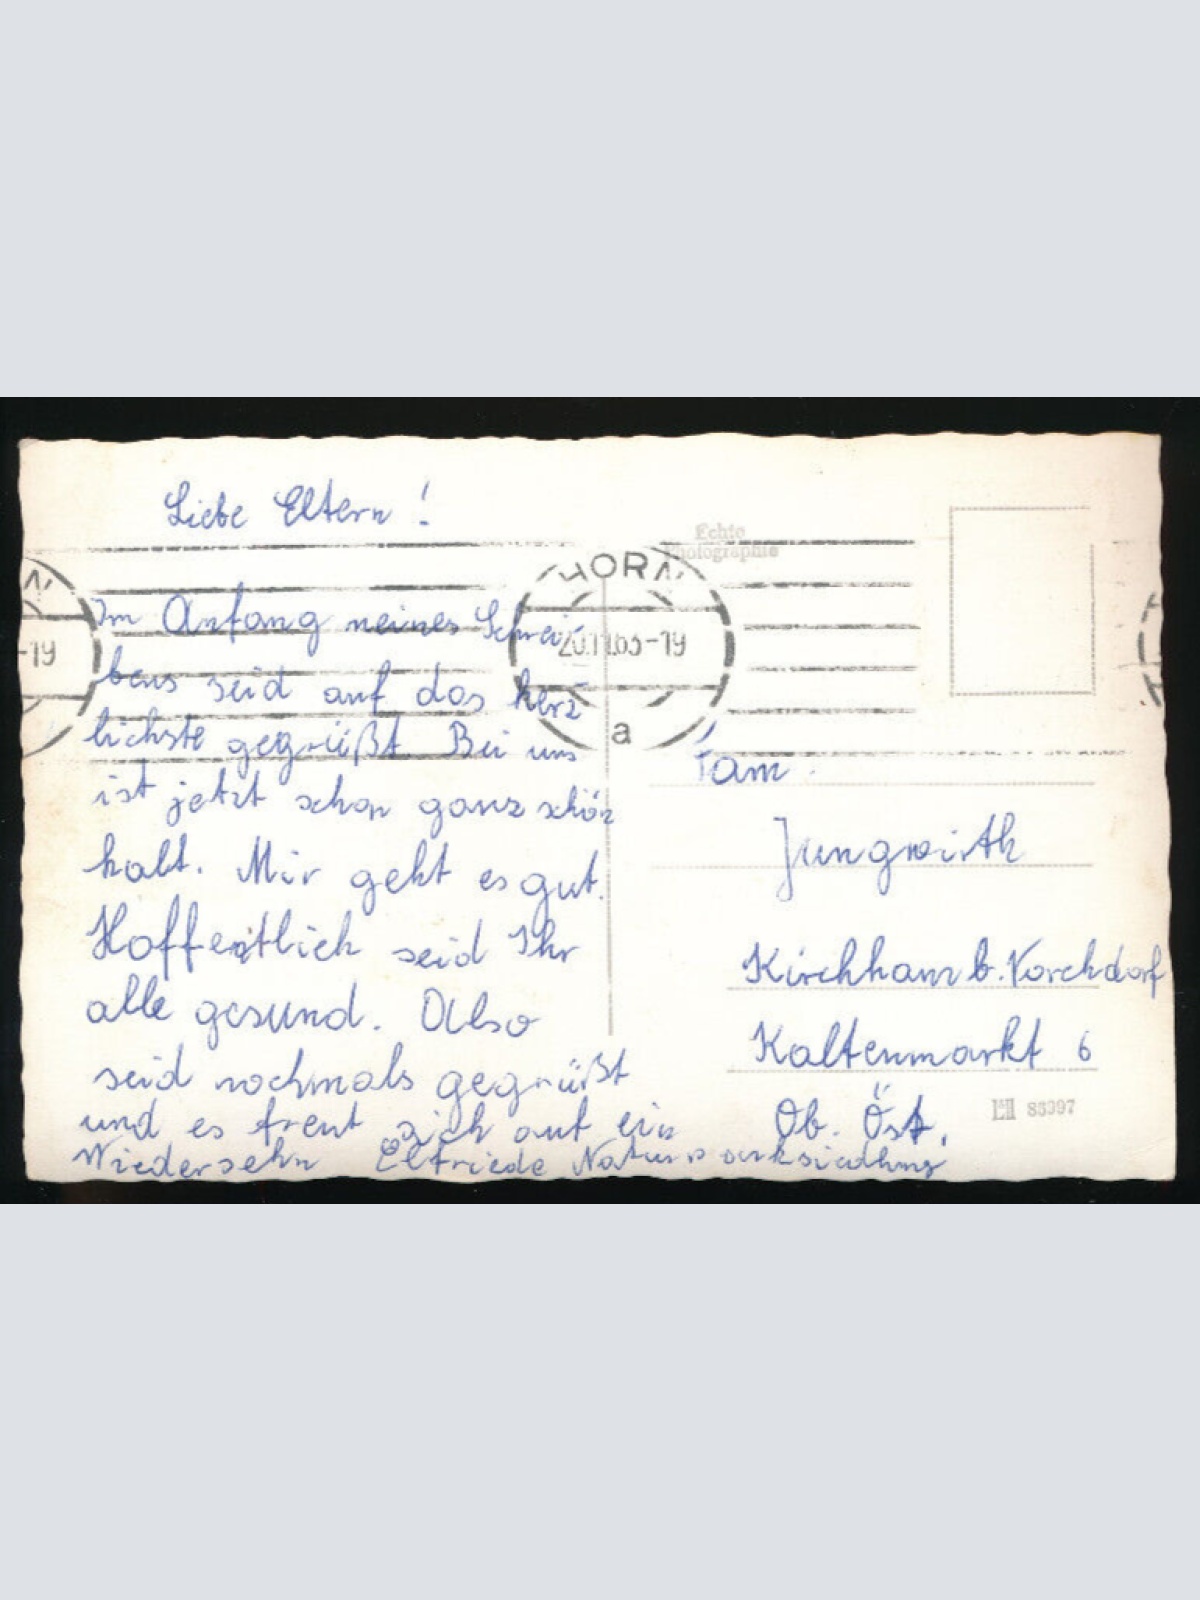 Liebe Eltern!
Im Anfang meines Schrei-
bens seid auf das herz-
lichste gegrüßt. Bei uns
ist jetzt schon ganz schön
kalt. Mir geht es gut.
Hoffentlich seid Ihr
alle gesund. Also
seid nochmals gegrüßt
und es freut sich auf ein
Wiedersehn Elfriede
Echte
Photographie
HORN
20.11.63-19
a
N
-19
Fam.
Jungwirth
Kirchham b. Vorchdorf
Kaltenmarkt 6
Ob. Öst.